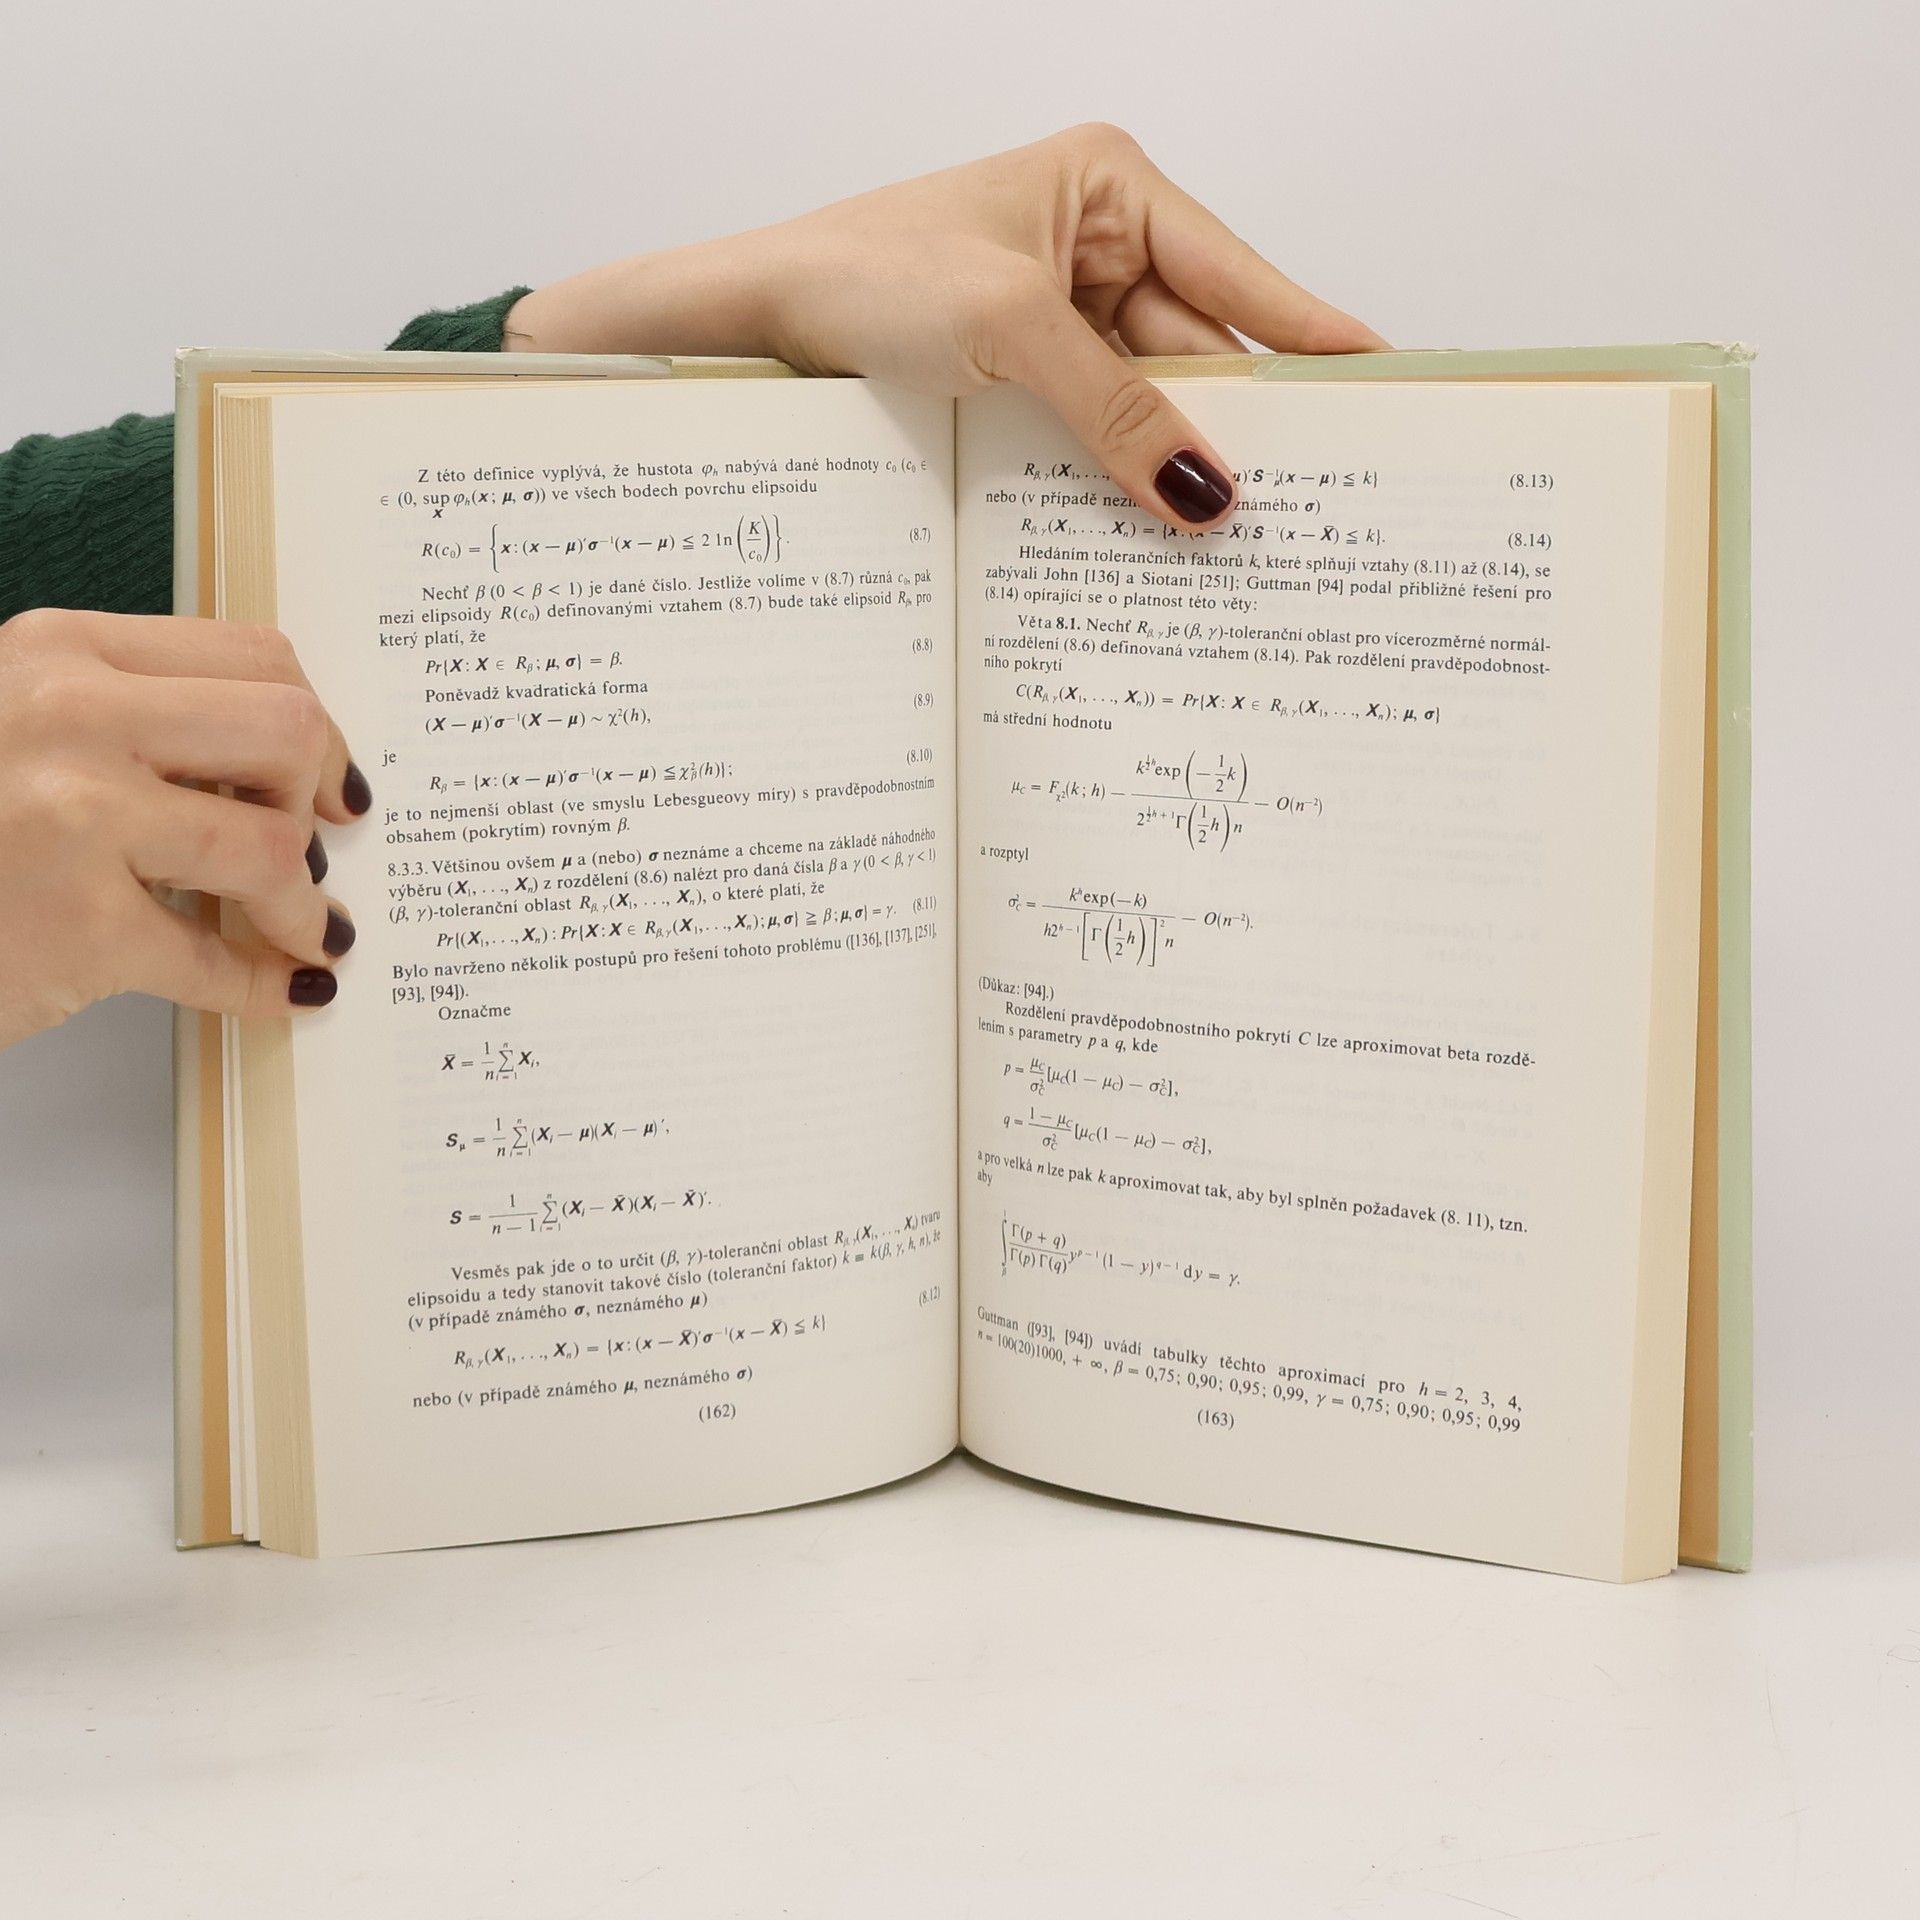 Z této definice vyplývá, že hustota φₕ nabývá dané hodnoty c₀ (c₀ ∈
∈ (0, sup φₕ(x; μ, σ)) ve všech bodech povrchu elipsoidu
x
R(c₀) = {x: (x − μ)′σ⁻¹(x − μ) ≦ 2 ln (K/c₀)}. (8.7)
Nechť β (0 < β < 1) je dané číslo. Jestliže volíme v (8.7) různá c₀, pak
mezi elipsoidy R(c₀) definovanými vztahem (8.7) bude také elipsoid R_β, pro
který platí, že
Pr{X: X ∈ R_β; μ, σ} = β. (8.8)
Poněvadž kvadratická forma
(X − μ)′σ⁻¹(X − μ) ~ χ²(h), (8.9)
je
R_β = {x: (x − μ)′σ⁻¹(x − μ) ≦ χ²_β(h)}; (8.10)
je to nejmenší oblast (ve smyslu Lebesgueovy míry) s pravděpodobnostním
obsahem (pokrytím) rovným β.
8.3.3. Většinou ovšem μ a (nebo) σ neznáme a chceme na základě náhodného
výběru (X₁, . . ., Xₙ) z rozdělení (8.6) nalézt pro daná čísla β a γ (0 < β, γ < 1)
(β, γ)-toleranční oblast R_β,γ(X₁, . . ., Xₙ), o které platí, že
Pr{(X₁, . . ., Xₙ) : Pr{X: X ∈ R_β,γ(X₁, . . ., Xₙ); μ, σ} ≧ β; μ, σ} = γ. (8.11)
Bylo navrženo několik postupů pro řešení tohoto problému ([136], [137], [251],
[93], [94]).
Označme
X̄ = 1/n ∑ⁿᵢ₌₁ Xᵢ,
S_μ = 1/n ∑ⁿᵢ₌₁ (Xᵢ − μ)(Xᵢ − μ)′,
S = 1/(n − 1) ∑ⁿᵢ₌₁ (Xᵢ − X̄)(Xᵢ − X̄)′.
Vesměs pak jde o to určit (β, γ)-toleranční oblast R_β,γ(X₁, . . ., Xₙ) tvaru
elipsoidu a tedy stanovit takové číslo (toleranční faktor) k = k(β, γ, h, n), že
(v případě známého σ, neznámého μ)
R_β,γ(X₁, . . ., Xₙ) = {x: (x − X̄)′σ⁻¹(x − X̄) ≦ k} (8.12)
nebo (v případě známého μ, neznámého σ)
(162)
R_β,γ(X₁, . . . μ)′S_μ⁻¹(x − μ) ≦ k} (8.13)
nebo (v případě známého σ)
R_β,γ(X₁, . . ., Xₙ) = {x: (x − X̄)′S⁻¹(x − X̄) ≦ k}. (8.14)
Hledáním tolerančních faktorů k, které splňují vztahy (8.11) až (8.14), se
zabývali John [136] a Siotani [251]; Guttman [94] podal přibližné řešení pro
(8.14) opírající se o platnost této věty:
Věta 8.1. Nechť R_β,γ je (β, γ)-toleranční oblast pro vícerozměrné normál-
ní rozdělení (8.6) definovaná vztahem (8.14). Pak rozdělení pravděpodobnost-
ního pokrytí
C(R_β,γ(X₁, . . ., Xₙ)) = Pr{X: X ∈ R_β,γ(X₁, . . ., Xₙ); μ, σ}
má střední hodnotu
μ_C = F_χ²(k; h) − k^(½h) exp (−1/2 k) / (2^(½h + 1) Γ(1/2 h) n) − O(n⁻²)
a rozptyl
σ²_C = kʰ exp(−k) / (h2^(h − 1) [Γ(1/2 h)]² n) − O(n⁻²).
(Důkaz: [94].)
Rozdělení pravděpodobnostního pokrytí C lze aproximovat beta rozdě-
lením s parametry p a q, kde
p = μ_C/σ²_C [μ_C(1 − μ_C) − σ²_C],
q = (1 − μ_C)/σ²_C [μ_C(1 − μ_C) − σ²_C],
a pro velká n lze pak k aproximovat tak, aby byl splněn požadavek (8. 11), tzn.
aby
∫¹_β Γ(p + q)/(Γ(p) Γ(q)) y^(p − 1) (1 − y)^(q − 1) dy = γ.
Guttman ([93], [94]) uvádí tabulky těchto aproximací pro h = 2, 3, 4,
n = 100(20)1000, + ∞, β = 0,75; 0,90; 0,95; 0,99, γ = 0,75; 0,90; 0,95; 0,99
(163)